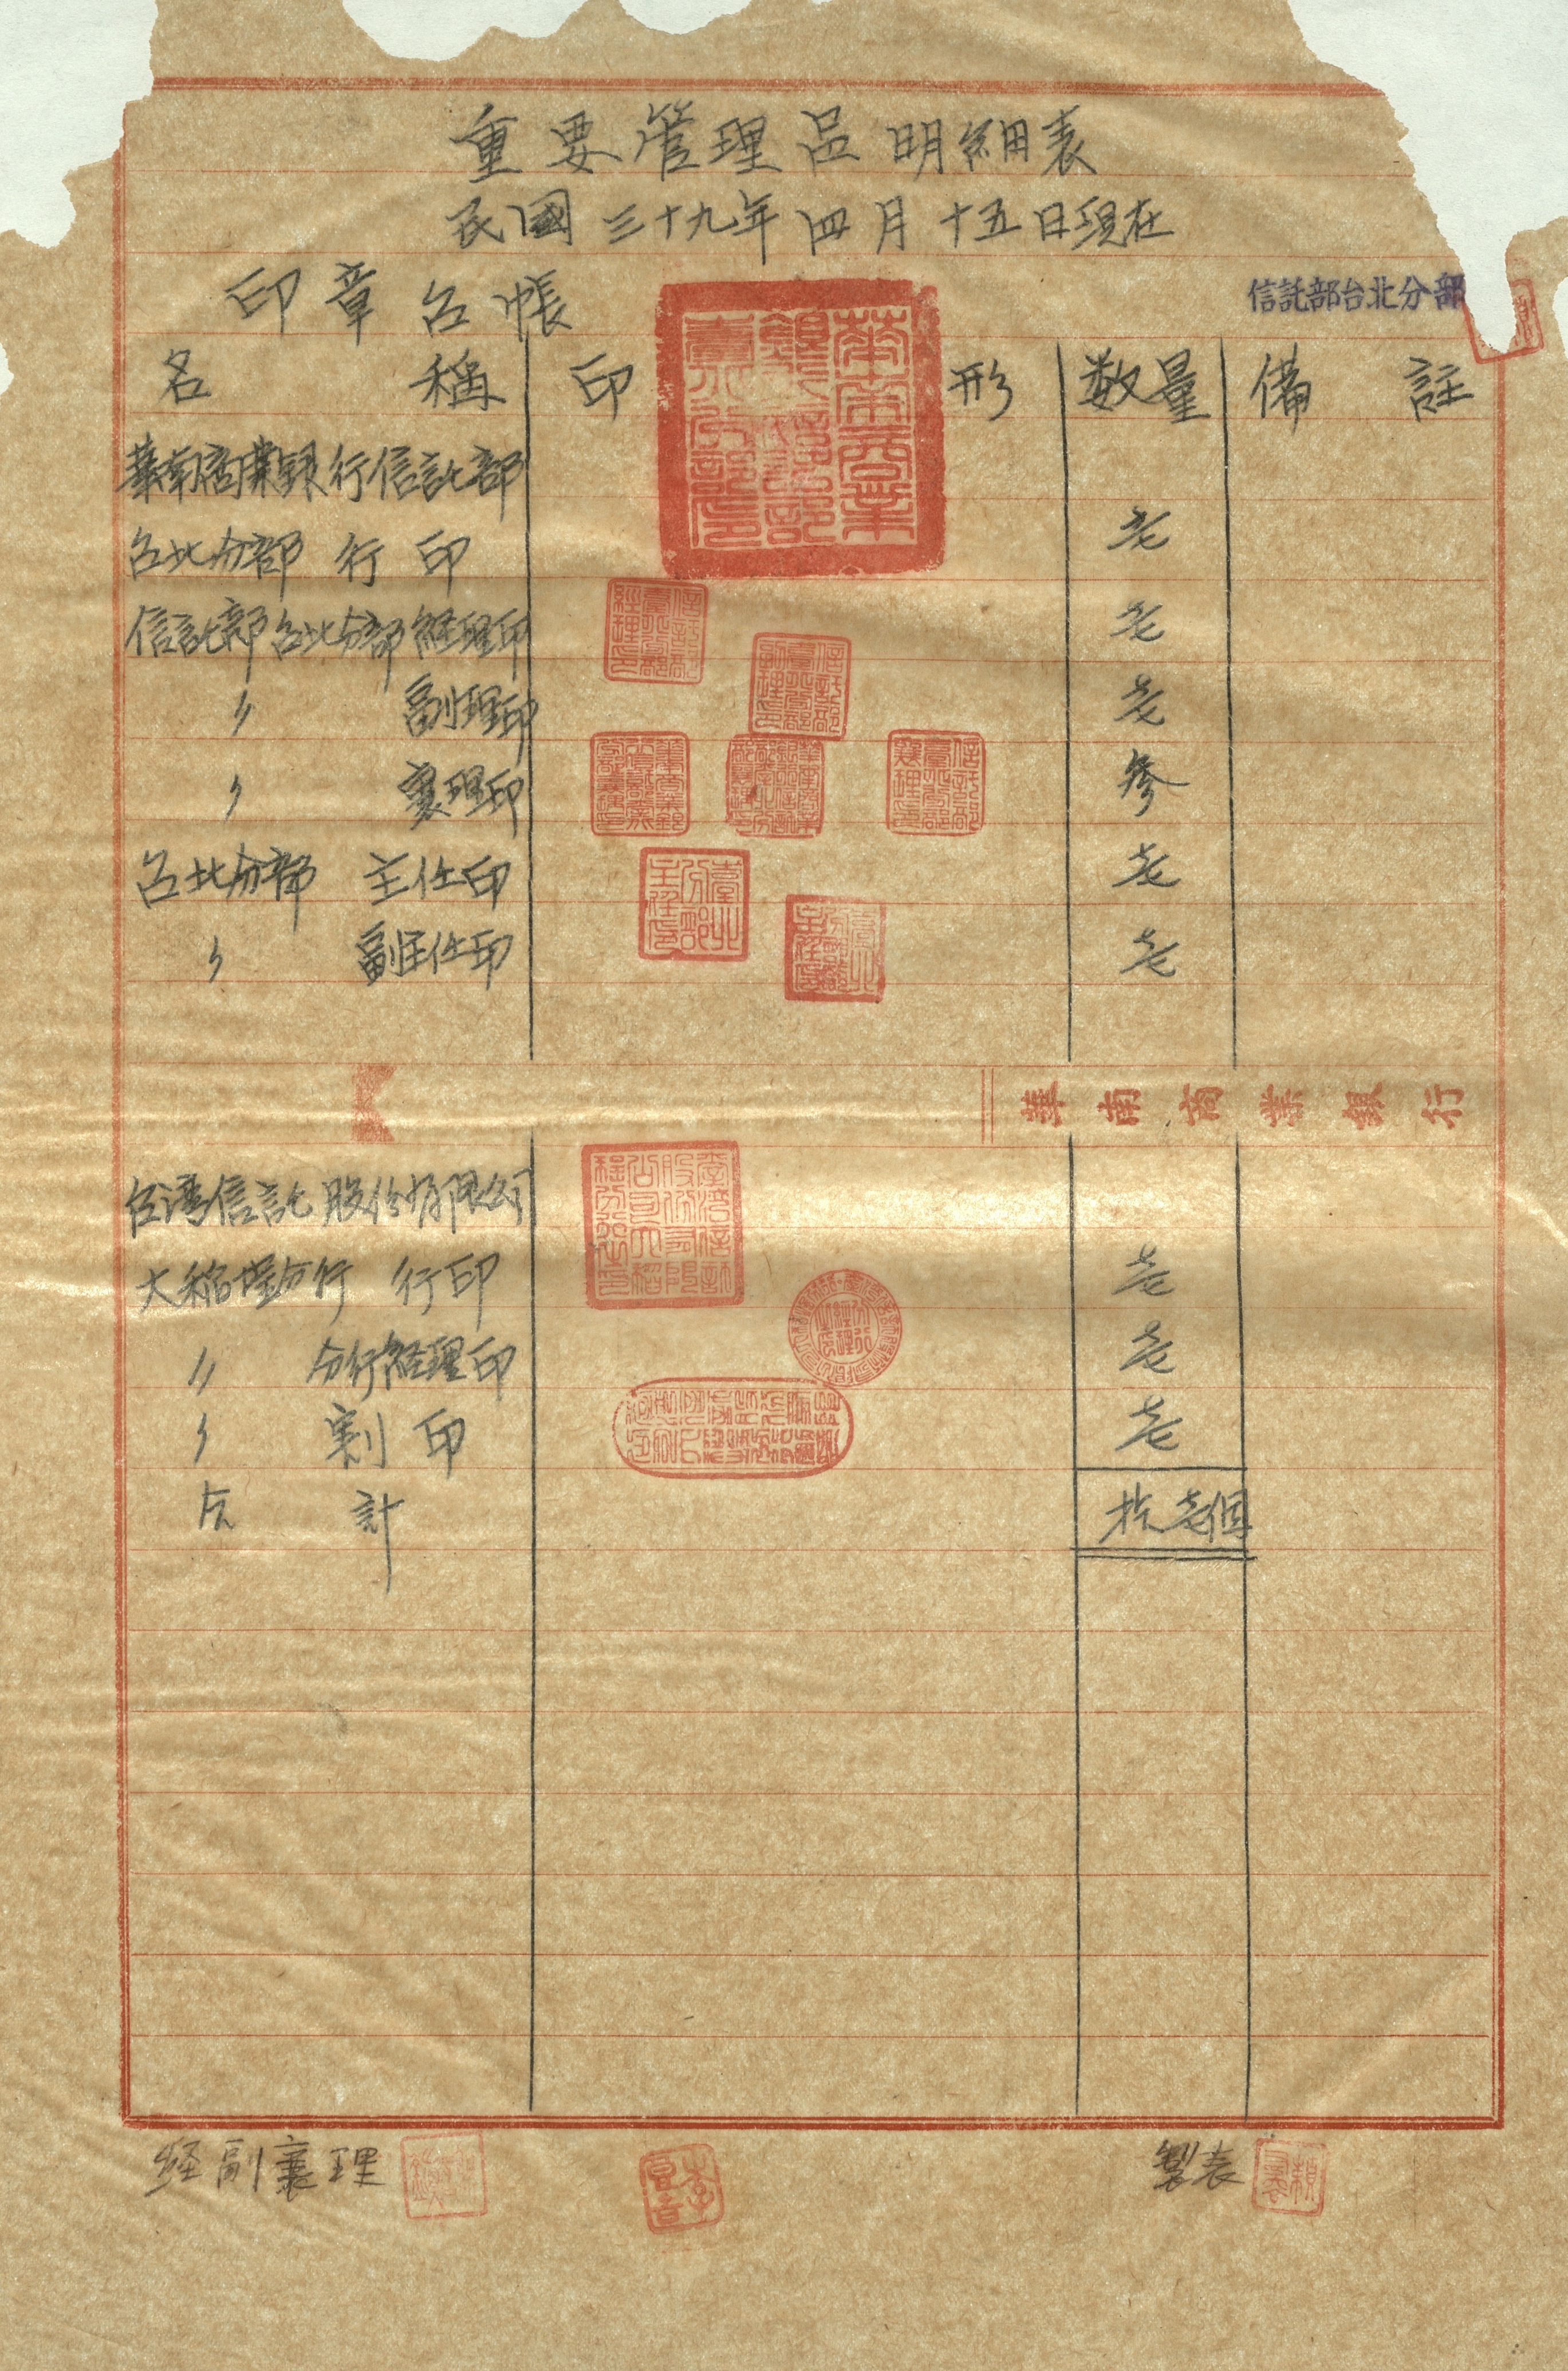 重要管理品明細表
民國三十九年四月十五日現在
印章台帳
信託部台北分部
名稱 印形 数量 備註
華南商業銀行信託部
台北分部 行印 壱
信託部台北分部経理印 壱
〃 副理印 壱
〃 襄理印 参
台北分部 主任印 壱
〃 副主任印 壱
華南商業銀行
台湾信託股份有限公司
大稲埕分行 行印 壱
〃 分行経理印 壱
〃 割印 壱
合計 拾壱個
経副襄理 製表